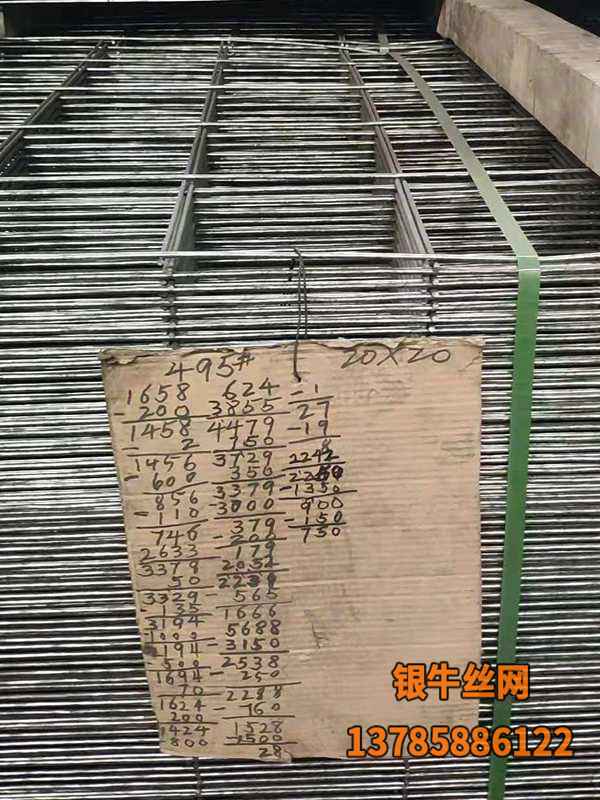 495# 20×20
1658
-200
1458
- 2
1456
-600
856
-110
746
2633
3379
50
3329
-135
3194
-1000
2194
-500
1694
70
1624
200
1424
800
624
3855
4479
750
3729
350
3379
-3000
379
-200
179
-565
1666
5688
-3150
2538
-250
2288
-760
1528
1500
28
-1
27
-19
8
2242
2250
-1350
900
-150
750
银牛丝网
13785886122